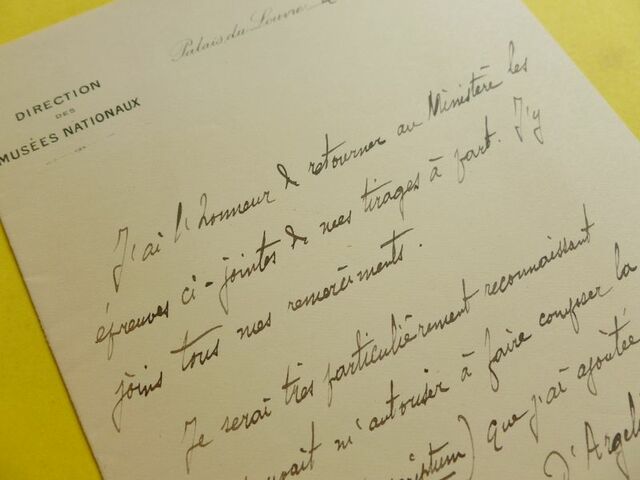 Palais du Louvre
DIRECTION
DES
MUSÉES NATIONAUX
J'ai l'honneur de retourner au Ministère les
épreuves ci-jointes de mes tirages à part. J'y
joins tous mes remerciments.
Je serai très particulièrement reconnaissant
m'autoriser à faire composer la
) que j'ai ajoutée
D'Argel